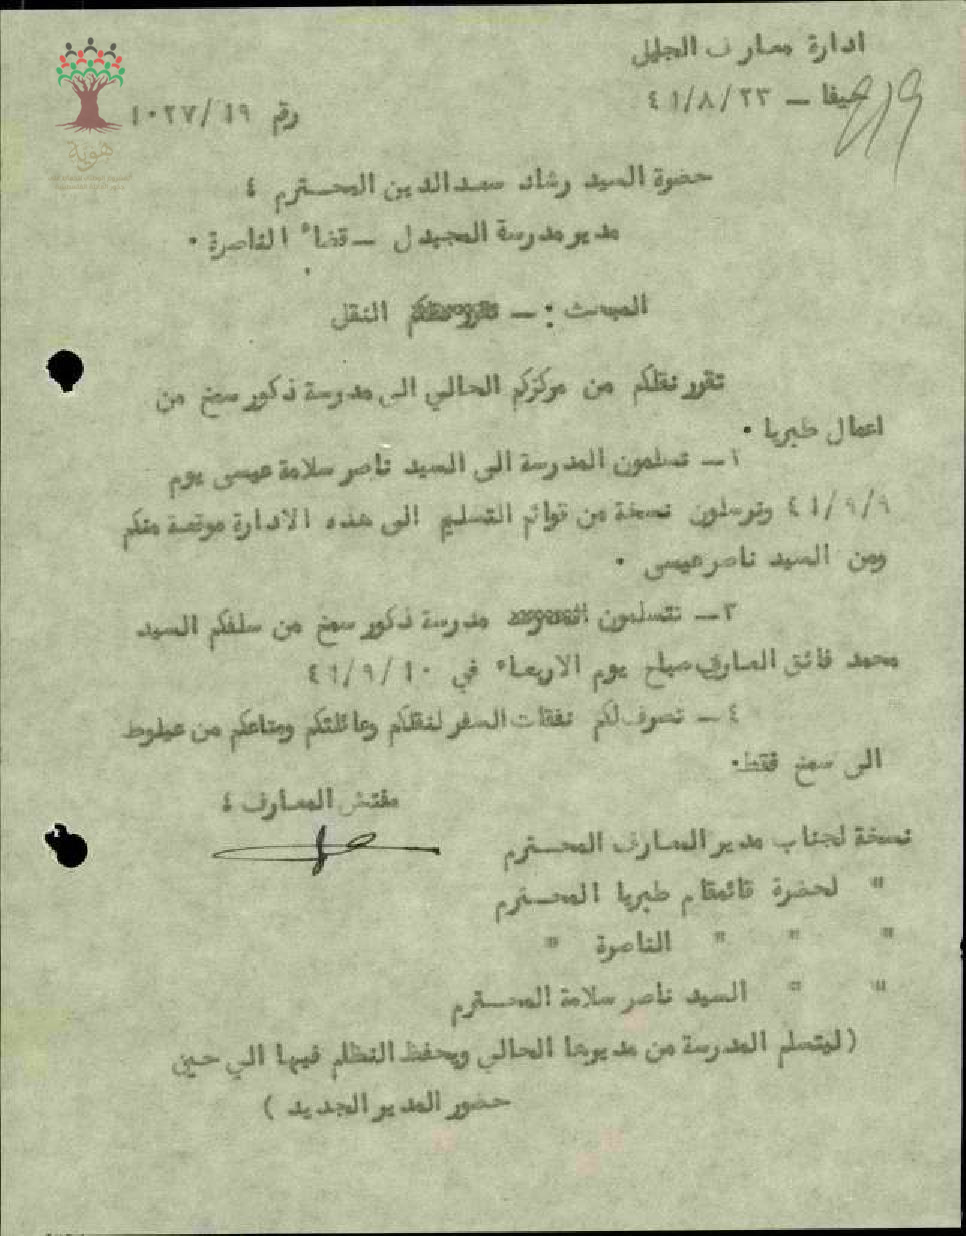 ادارة معارف الجليل
حيفا ــ ٢٣/٨/٤١
٩/٩
رقم ١٩/١٠٢٧
هوية
حضرة السيد رشاد سعدالدين المحـــترم ٤
مدير مدرسة المجيدل ــ قضاء الناصرة ٠
المبحث : ــ النقل
تقرر نقلكم من مركزكم الحالي الى مدرسة ذكور سمخ من
اعمال طبريا ٠
١ــ تسلمون المدرسة الى السيد ناصر سلامة عيسى يوم
٤١/٩/٩ وترسلون نسخة من قوائم التسليم الى هذه الادارة موقعة منكم
ومن السيد ناصر عيسى ٠
٢ــ تتسلمون مدرسة ذكور سمخ من سلفكم السيد
محمد فائق صباح يوم الاربعاء في ٤١/٩/١٠
٤ــ تصرف لكم نفقات السفر لنقلكم وعائلتكم ومتاعكم من عيلوط
الى سمخ فقط٠
مفتش المعارف ٤
نسخة لجناب مدير المعارف المحـــترم
" لحضرة قائمقام طبريا المحـــترم
" " " الناصرة "
" " السيد ناصر سلامة المحـــترم
(ليتسلم المدرسة من مديرها الحالي ويحفظ النظام فيها الى حين
حضور المدير الجديد )